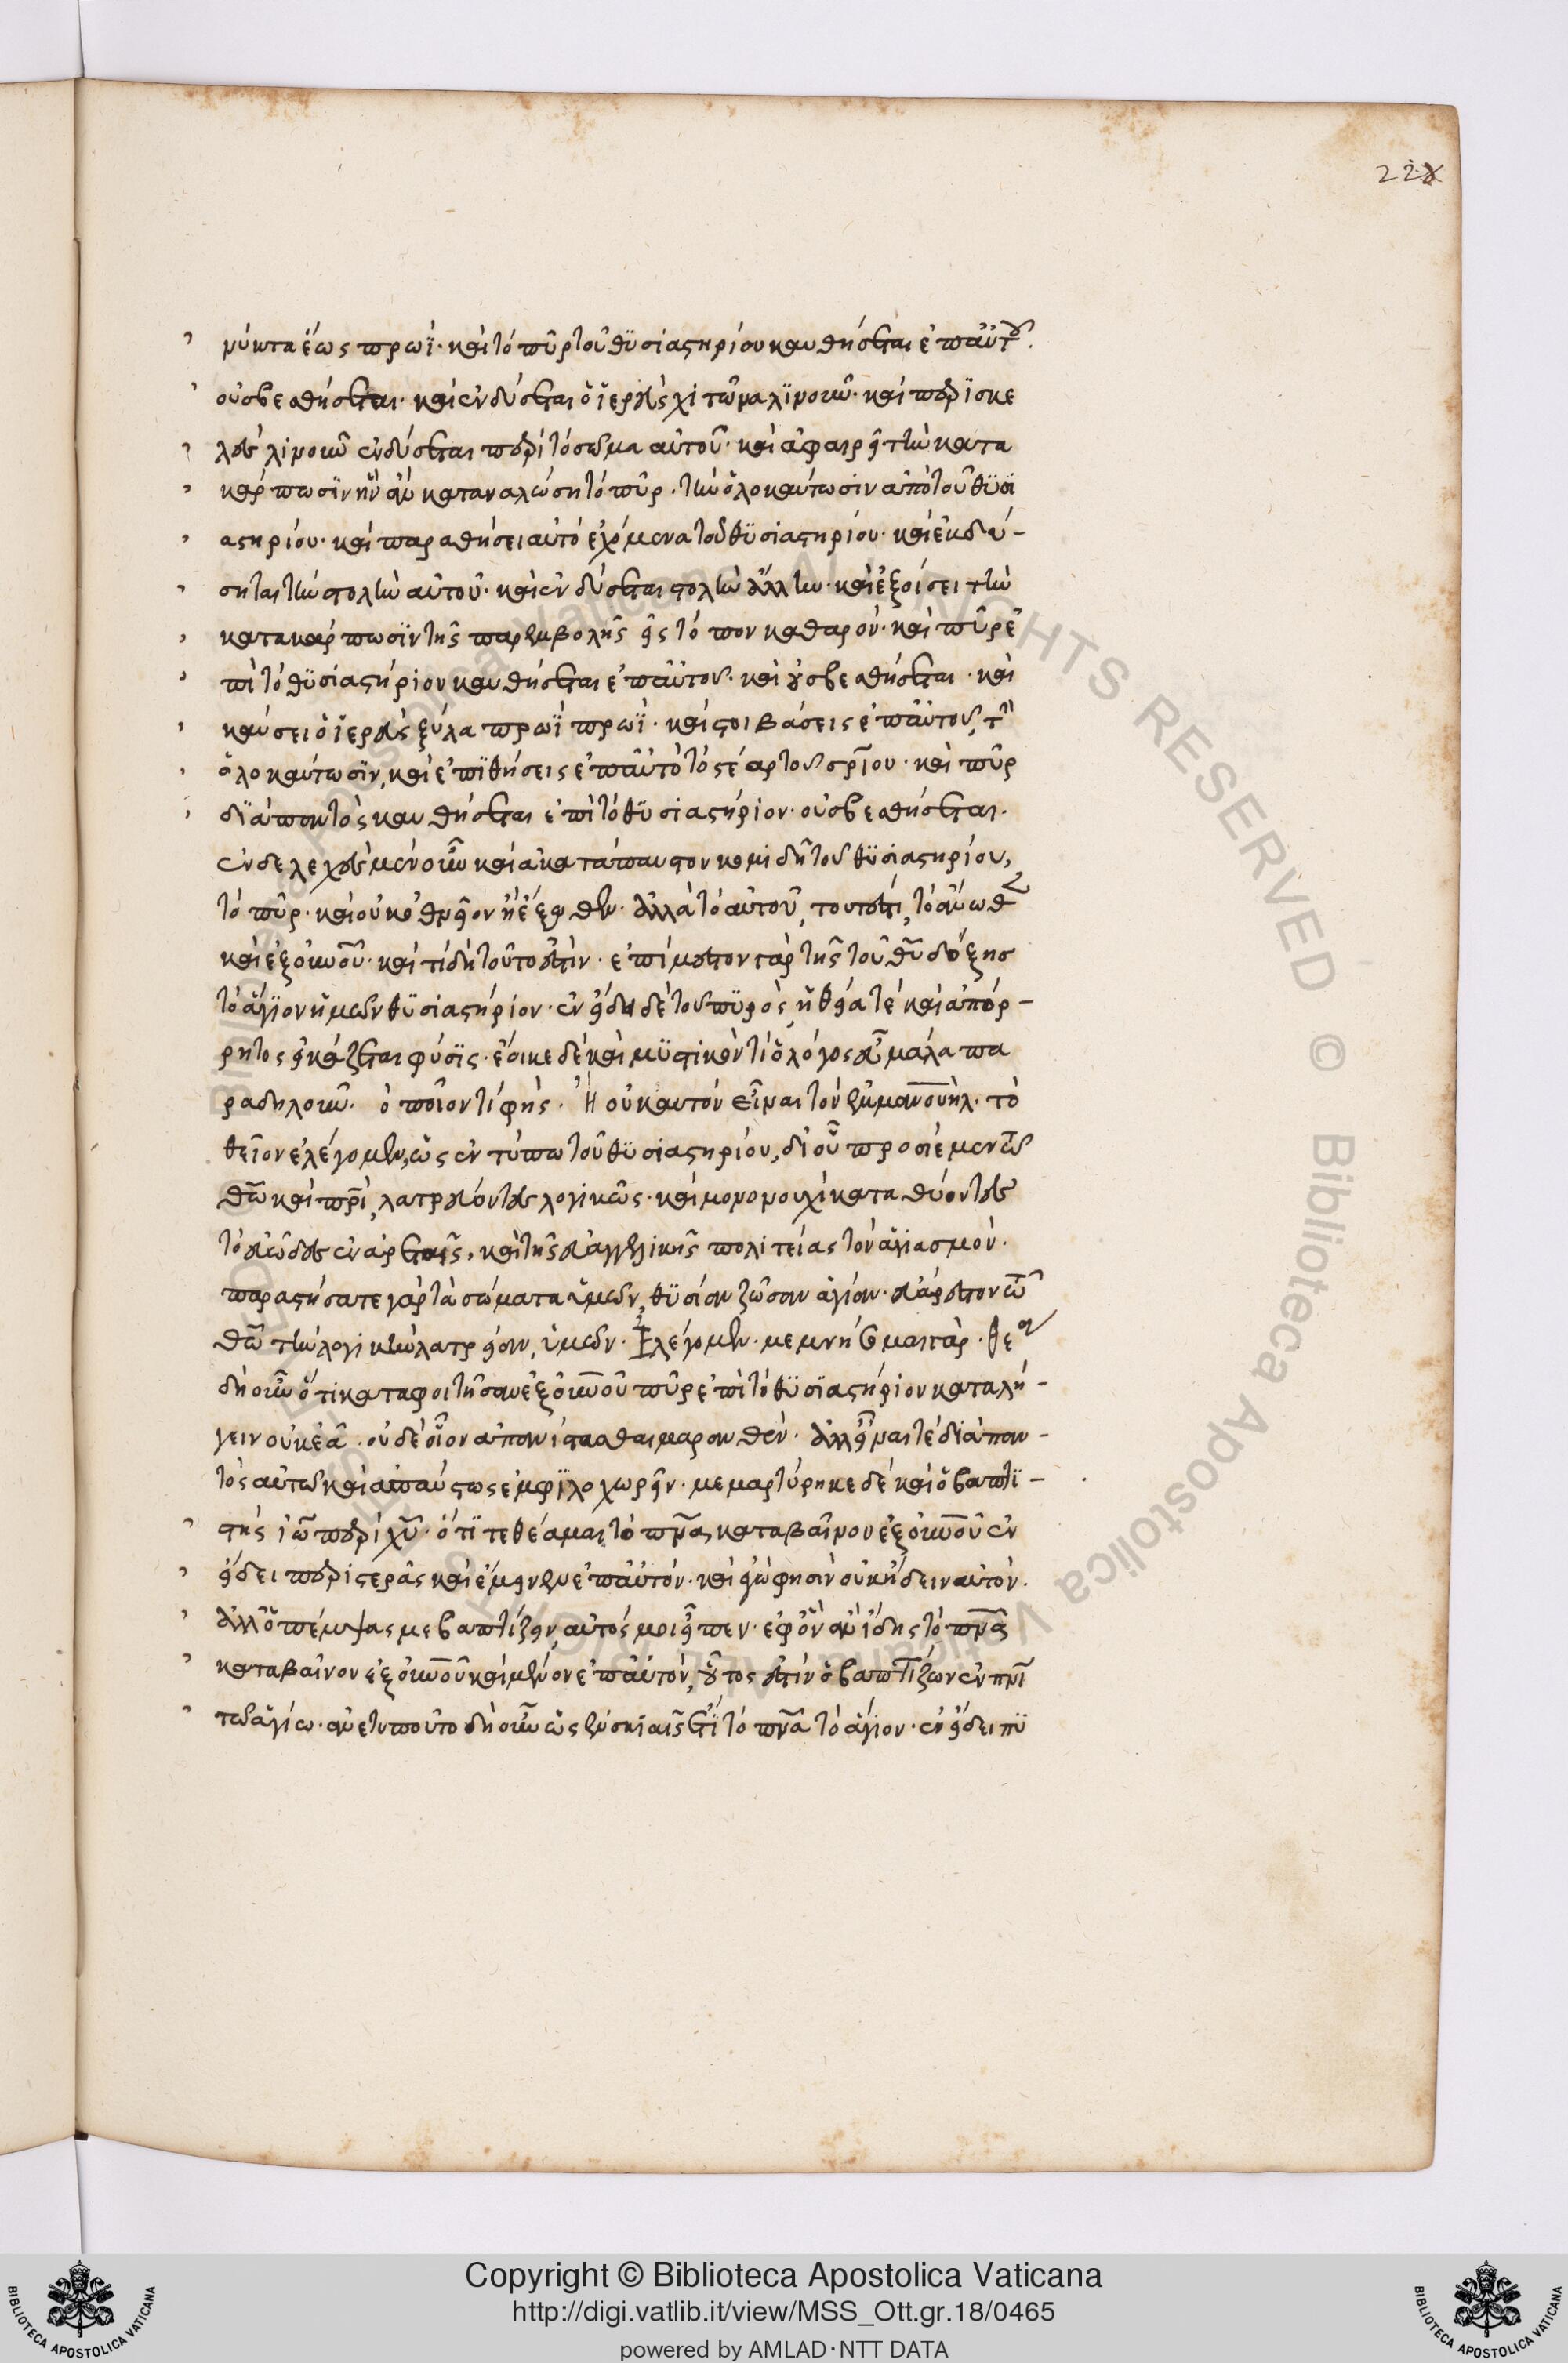 228
νύκτα ἕως πρωΐ· καὶ τὸ πῦρ τοῦ θυσιαστηρίου καυθήσεται ἐπ' αὐτοῦ.
οὐ σβεσθήσεται· καὶ ἐνδύσεται ὁ ἱερεὺς χιτῶνα λινοῦν· καὶ περισκε
λὲς λινοῦν ἐνδύσεται περὶ τὸ σῶμα αὐτοῦ· καὶ ἀφαιρεῖ τὴν κατα
κάρπωσιν ἣν ἂν καταναλώσῃ τὸ πῦρ· τὴν ὁλοκαύτωσιν ἀπὸ τοῦ θυσι
αστηρίου· καὶ παραθήσει αὐτὸ ἐχόμενα τοῦ θυσιαστηρίου· καὶ ἐκδύ-
σηται τὴν στολὴν αὐτοῦ· καὶ ἐνδύσεται στολὴν ἄλλην· καὶ ἐξοίσει τὴν
κατακάρπωσιν τῆς παρεμβολῆς εἰς τόπον καθαρόν· καὶ πῦρ ἐ
πὶ τὸ θυσιαστήριον καυθήσεται ἐπ' αὐτοῦ· καὶ οὐ σβεσθήσεται· καὶ
καύσει ὁ ἱερεὺς ξύλα πρωῒ πρωΐ· καὶ στοιβάσεις ἐπ' αὐτοῦ, τὴν
ὁλοκαύτωσιν, καὶ ἐπιθήσεις ἐπ' αὐτὸ τὸ στέαρ τοῦ σρίου· καὶ πῦρ
διὰ παντὸς καυθήσεται ἐπὶ τὸ θυσιαστήριον· οὐ σβεσθήσεται.
ἐνδελεχὲς μὲν οὖν καὶ ἀκατάπαυστον κομιδῇ τοῦ θυσιαστηρίου,
τὸ πῦρ· καὶ οὐκ ὀθνεῖον ἢ ἔξωθεν· ἀλλὰ τὸ αὐτοῦ, τουτέστι, τὸ ἄνωθεν
καὶ ἐξ οὐνοῦ· καὶ τί δὴ τοῦτο ἐστίν· ἐπίμεστον γὰρ τῆς τοῦ θυ δόξης
τὸ ἅγιον ἡμῶν θυσιαστήριον· ἐν εἴδει δὲ τοῦ πυρὸς, ἡ θεία τὲ καὶ ἀπόρ-
ρητος εἰκάζεται φύσις· ἔοικε δὲ καὶ μυστικόν τι ὁ λόγος εὖ μάλα πα
ραδηλοῦν. ὁποῖον τί φής· Ἢ οὐκ αὐτὸν εἶναι τὸν ἐμμανουήλ· τὸ
θεῖον ἐλέγομεν, ὡς ἐν τύπῳ τοῦ θυσιαστηρίου, δι' οὗ προσιέμεν τῷ
θῶ καὶ πρὶ, λατρεύοντες λογικῶς· καὶ μονονουχὶ καταθύοντες
τὸ εὐῶδες ἐν ἀρεταῖς, καὶ τῆς εὐαγγελικῆς πολιτείας τὸν ἁγιασμόν.
παραστήσατε γὰρ τὰ σώματα ὑμῶν, θυσίαν ζῶσαν ἁγίαν· εὐάρεστον τῷ
θῶ τὴν λογικὴν λατρείαν, ὑμῶν. Ἐλέγομεν· μέμνημαι γάρ.
δὴ οὖν ὅτι καταφοιτῆσαν ἐξ οὐνοῦ πῦρ ἐπὶ τὸ θυσιαστήριον καταλή-
γειν οὐκ ἐᾶ· οὐδὲ οἷον ἀπονίστασθαι μαρανθέν· ἀλλ' εἶναι τὲ διὰ παν-
τὸς αὐτῶ καὶ ἀπαύστως ἐμφιλοχωρεῖν· μεμαρτύρηκε δὲ καὶ ὁ βαπτι-
στὴς ἰῶ περὶ χυ· ὅτι τεθέαμαι τὸ πνα, καταβαῖνον ἐξ οὐνοῦ ἐν
εἴδει περιστερᾶς καὶ ἔμεινεν ἐπ' αὐτόν· κἀγώ φησιν οὐκ ᾔδειν αὐτόν.
ἀλλ' ὁ πέμψας με βαπτίζειν, αὐτός μοι εἶπεν· ἐφ' ὃν ἂν ἴδῃς τὸ πνα
καταβαῖνον ἐξ οὐνοῦ καὶ μένον ἐπ' αὐτόν, οὗτος ἐστὶν ὁ βαπτίζων ἐν πνι
τῶ ἁγίω· ἀνετυποῦτο δὴ οὖν ὡς ἐν σκιαῖς ἔτι τὸ πνα τὸ ἅγιον· ἐν εἴδει πυ
Copyright © Biblioteca Apostolica Vaticana
http://digi.vatlib.it/view/MSS_Ott.gr.18/0465
powered by AMLAD·NTT DATA
BIBLIOTECA APOSTOLICA VATICANA
BIBLIOTECA APOSTOLICA VATICANA